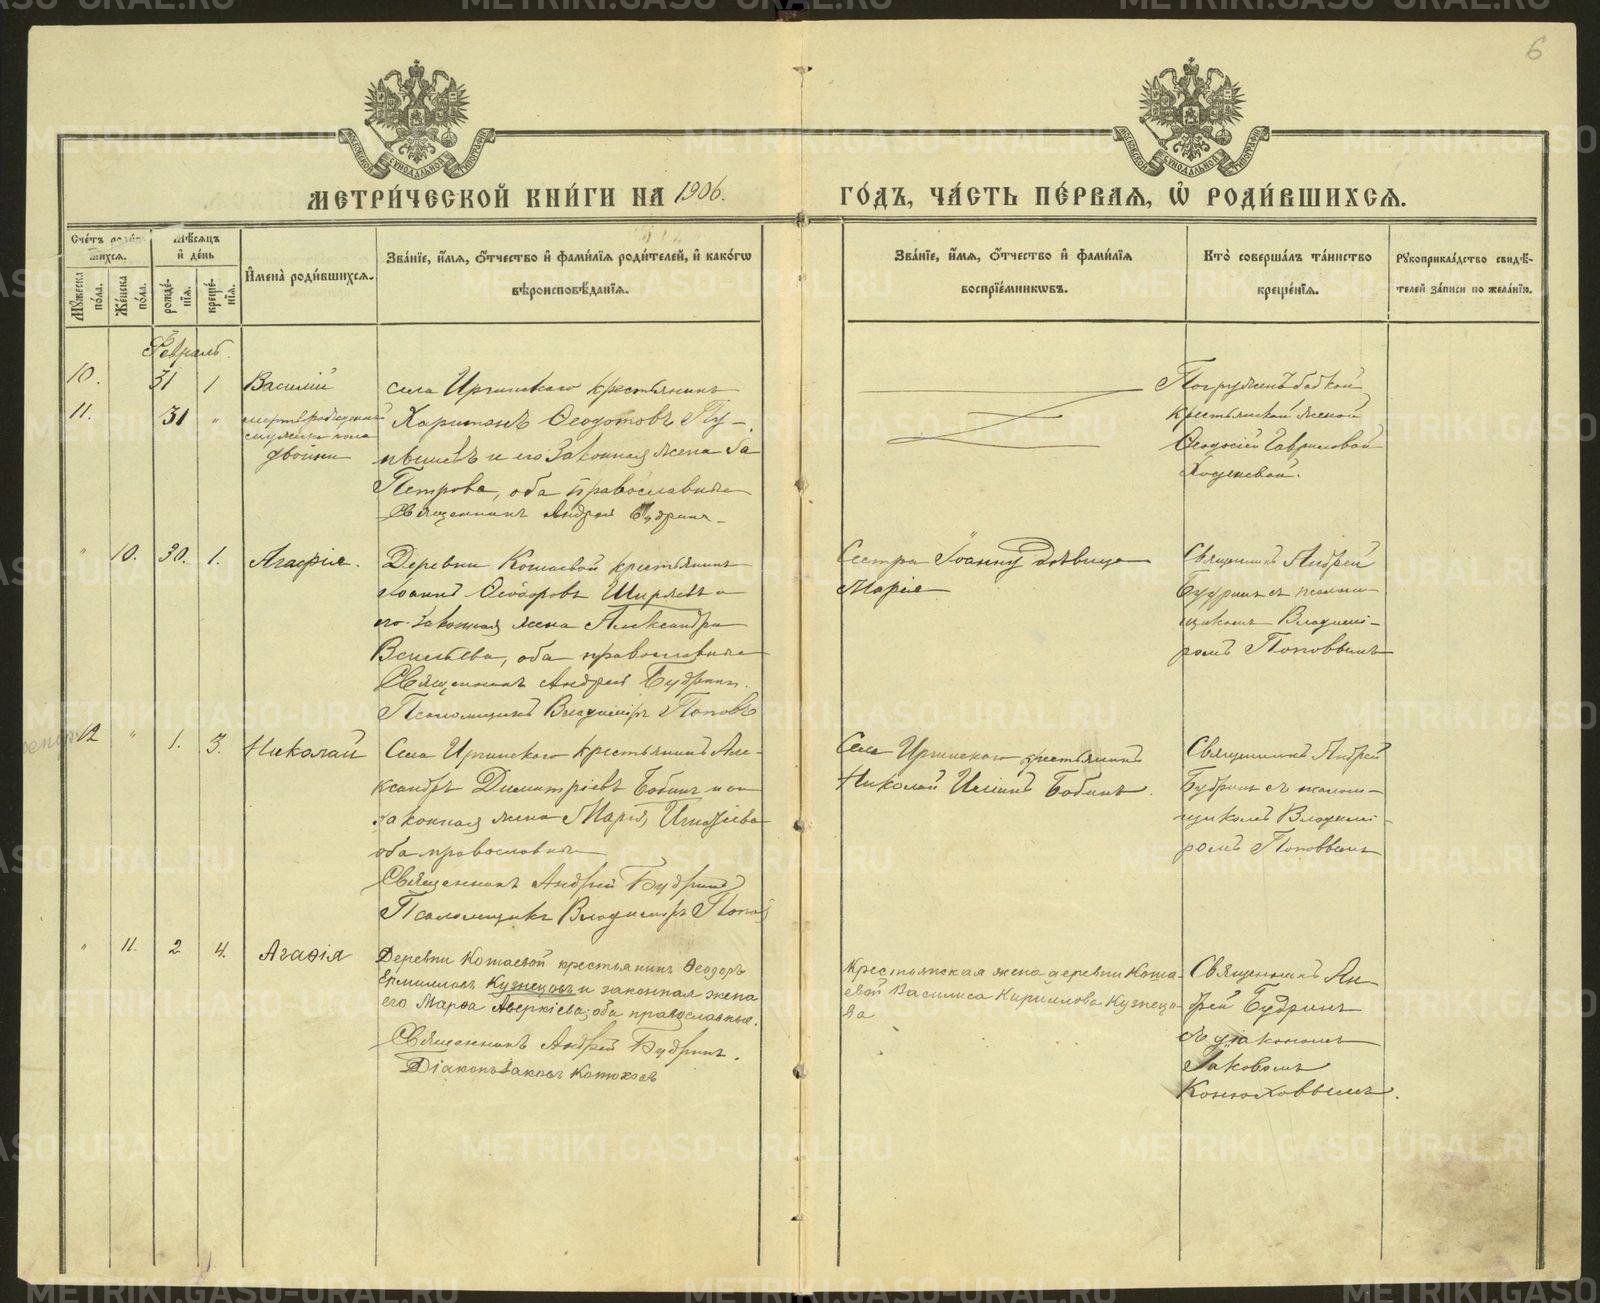 6
МОСКОВСКОЙ СѴНОДАЛЬНОЙ ТИПОГРАФІИ
МОСКОВСКОЙ СѴНОДАЛЬНОЙ ТИПОГРАФІИ
МЕТРИ́ЧЕСКОЙ КНИ́ГИ НА 1906.
ГО́ДЪ, ЧА́СТЬ ПЕ́РВАѦ, Ѡ҆ РОДИ́ВШИХСѦ.
Сче́тъ роди́вшихсѧ.
Мꙋ́жеска по́ла.
Же́нска по́ла.
Мѣ́сѧцъ и҆ де́нь
рожде́нїѧ.
креще́нїѧ.
И҆мена̀ роди́вшихсѧ.
Зва́нїе, и҆́мѧ, ѻ҆́тчество и҆ фами́лїѧ роди́телей, и҆ како́гѡ
вѣроисповѣ́данїѧ.
Зва́нїе, и҆́мѧ, ѻ҆́тчество и҆ фами́лїѧ
воспрїе́мникѡвъ.
Кто̀ соверша́лъ та́инство
креще́нїѧ.
Рꙋкоприкла́дство свидѣ́-
телей за́писи по жела́нїю.
Февраль.
10. 31 1 Василій
села Иргинскаго крестьянинъ
11. 31 " мертворожденный
мужска пола
двойни
Харитонъ Ѳеодотовъ
и его законная жена
Петрова, оба православные
Священникъ Андрей Будринъ
Погруженъ бабкой
крестьянской женой
Ѳеодосіей Гавриловой
" 10. 30. 1. Агафія.
Деревни Кошаевой крестьянинъ
Іоаннъ Ѳеодоровъ Ширяевъ и
его законная жена Александра
Васильева, оба православные
Священникъ Андрей Будринъ.
Псаломщикъ Владиміръ Поповъ
Сестра Іоанну дѣвица
Марія
Священникъ Андрей
Будринъ съ псалом-
щикомъ Владимі-
ромъ Поповымъ
12 " 1. 3. Николай
Села Иргинскаго крестьянинъ Але-
ксандръ Димитріевъ Бобинъ и его
законная жена Марія Игнатіева
оба православные
Священникъ Андрей Будринъ
Псаломщикъ Владиміръ Поповъ
Села Иргинскаго крестьянинъ
Николай Ильинъ Бобинъ.
Священникъ Андрей
Будринъ съ псалом-
щикомъ Владимі-
ромъ Поповымъ
" 11. 2 4. Агаѳія
Деревни Кошаевой крестьянинъ Ѳеодоръ
Ермиловъ Кузнецовъ и законная жена
его Марѳа Аверкіева; оба православные.
Священникъ Андрей Будринъ.
Діаконъ Іаковъ Конюховъ
Крестьянская жена деревни Коша-
евой Василиса Кириллова Кузнецо-
ва
Священникъ Ан-
дрей Будринъ
съ діакономъ
Іаковомъ
Конюховымъ.
METRIKI.GASO-URAL.RU